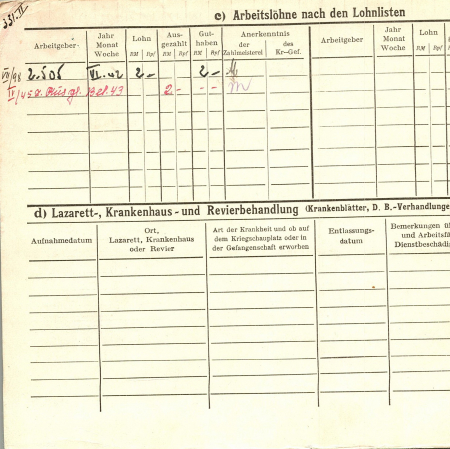 c) Arbeitslöhne nach den Lohnlisten
Arbeitgeber Jahr Monat Woche Lohn RM Rpf Aus- gezahlt RM Rpf Gut- haben RM Rpf Anerkenntnis der Zahlmeisterei des Kr.-Gef. Arbeitgeber Jahr Monat Woche Lohn RM Rpf
VII/98 2.505 VI. 42 2 - 2 -
43 2 - - -
d) Lazarett-, Krankenhaus- und Revierbehandlung (Krankenblätter, D. B.-Verhandlunge
Aufnahmedatum Ort, Lazarett, Krankenhaus oder Revier Art der Krankheit und ob auf dem Kriegschauplatz oder in der Gefangenschaft erworben Entlassungs- datum Bemerkungen üb und Arbeitsfä Dienstbeschädig